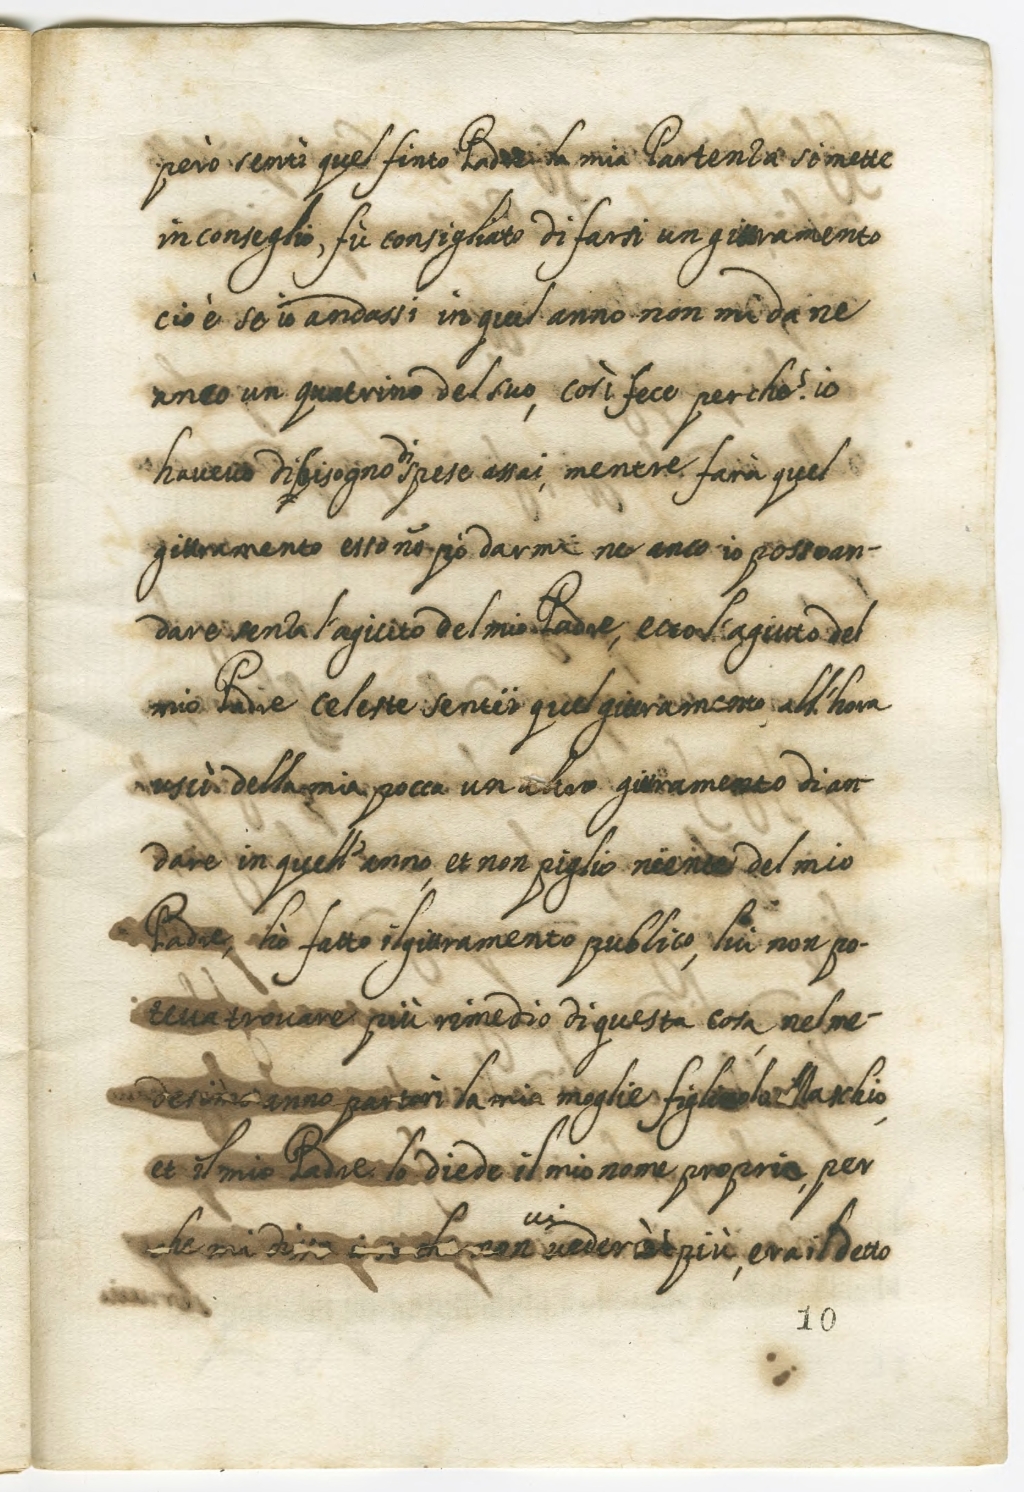 però sentì quel finto Padre la mia Partenza si mette
in conseglio, fù consigliato di farsi un giuramento
cio è se io andassi in quel anno non mi da ne
anco un quatrino del suo, così fece perche io
haveva di bisogno di spese assai, mentre farà quel
giuramento esso nō pò darmi ne anco io posso an-
dare senza l'agiuto del mio Padre, ecco l'agiuto del
mio Padre celeste sentii quel giuramento all'hora
uscì della mia pocca un altro giuramento di an-
dare in quell'anno, et non piglio niente del mio
Padre, hò fatto il giuramento publico, lui non po-
teva trovare più rimedio di questa cosa, nel me-
desimo anno partorì la mia moglie figliuolo Maschio,
et il mio Padre lo diede il mio nome proprio, per
che mi disse che non vi vederò più, era il detto
10